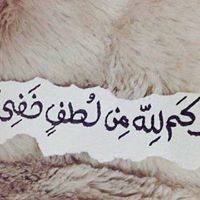 وكَم لِلّه مِن لُطفٍ خَفِي